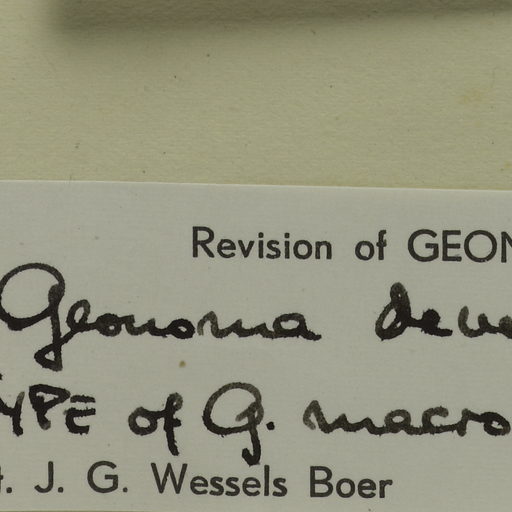 Revision of GEON
Geonoma deve
TYPE of G. macro
t. J. G. Wessels Boer